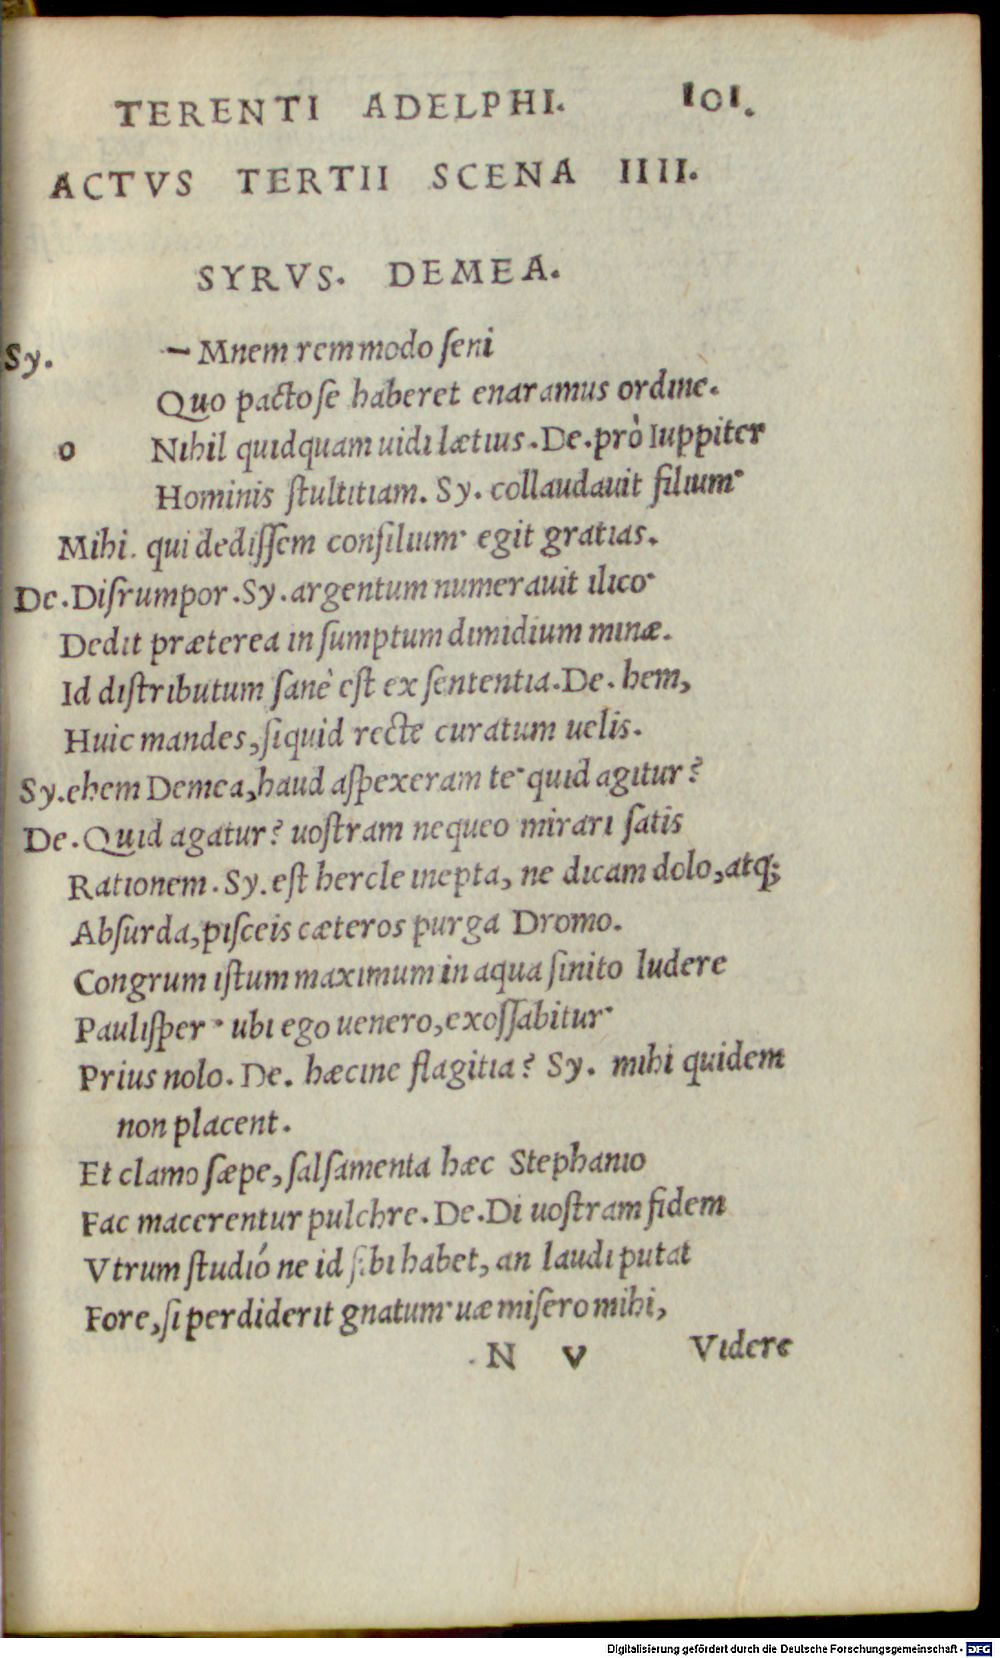 TERENTI ADELPHI. 101.
ACTVS TERTII SCENA IIII.
SYRVS. DEMEA.
Sy. — Mnem rem modo ſeni
Quo pacto ſe haberet enaramus ordine.
o Nihil quidquam uidi lætius. De. prò Iuppiter
Hominis ſtultitiam. Sy. collaudauit filium·
Mihi. qui dediſſem conſilium· egit gratias.
De. Diſrumpor. Sy. argentum numerauit ilico·
Dedit præterea in ſumptum dimidium minæ.
Id diſtributum ſanè eſt ex ſententia. De. hem,
Huic mandes, ſiquid recte curatum uelis.
Sy. ehem Demea, haud aſpexeram te· quid agitur?
De. Quid agatur? uoſtram nequeo mirari ſatis
Rationem. Sy. eſt hercle inepta, ne dicam dolo, atq;
Abſurda, piſceis cæteros purga Dromo.
Congrum iſtum maximum in aqua ſinito ludere
Pauliſper· ubi ego uenero, exoſſabitur·
Prius nolo. De. hæcine flagitia? Sy. mihi quidem
non placent.
Et clamo ſæpe, ſalſamenta hæc Stephanio
Fac macerentur pulchre. De. Di uoſtram fidem
Vtrum ſtudió ne id ſibi habet, an laudi putat
Fore, ſi perdiderit gnatum· uæ miſero mihi,
N v Videre
Digitalisierung gefördert durch die Deutsche Forschungsgemeinschaft - DFG